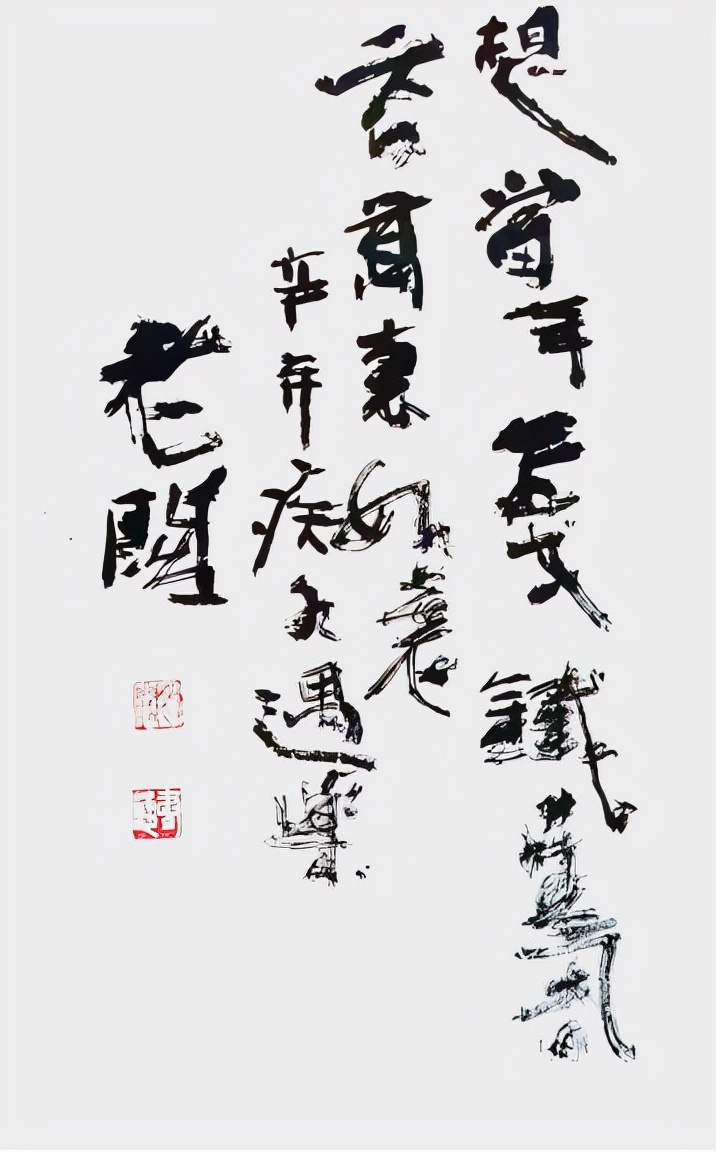 想當年金戈鐵馬氣
吞萬裏如虎
辛弃疾永遇樂
老